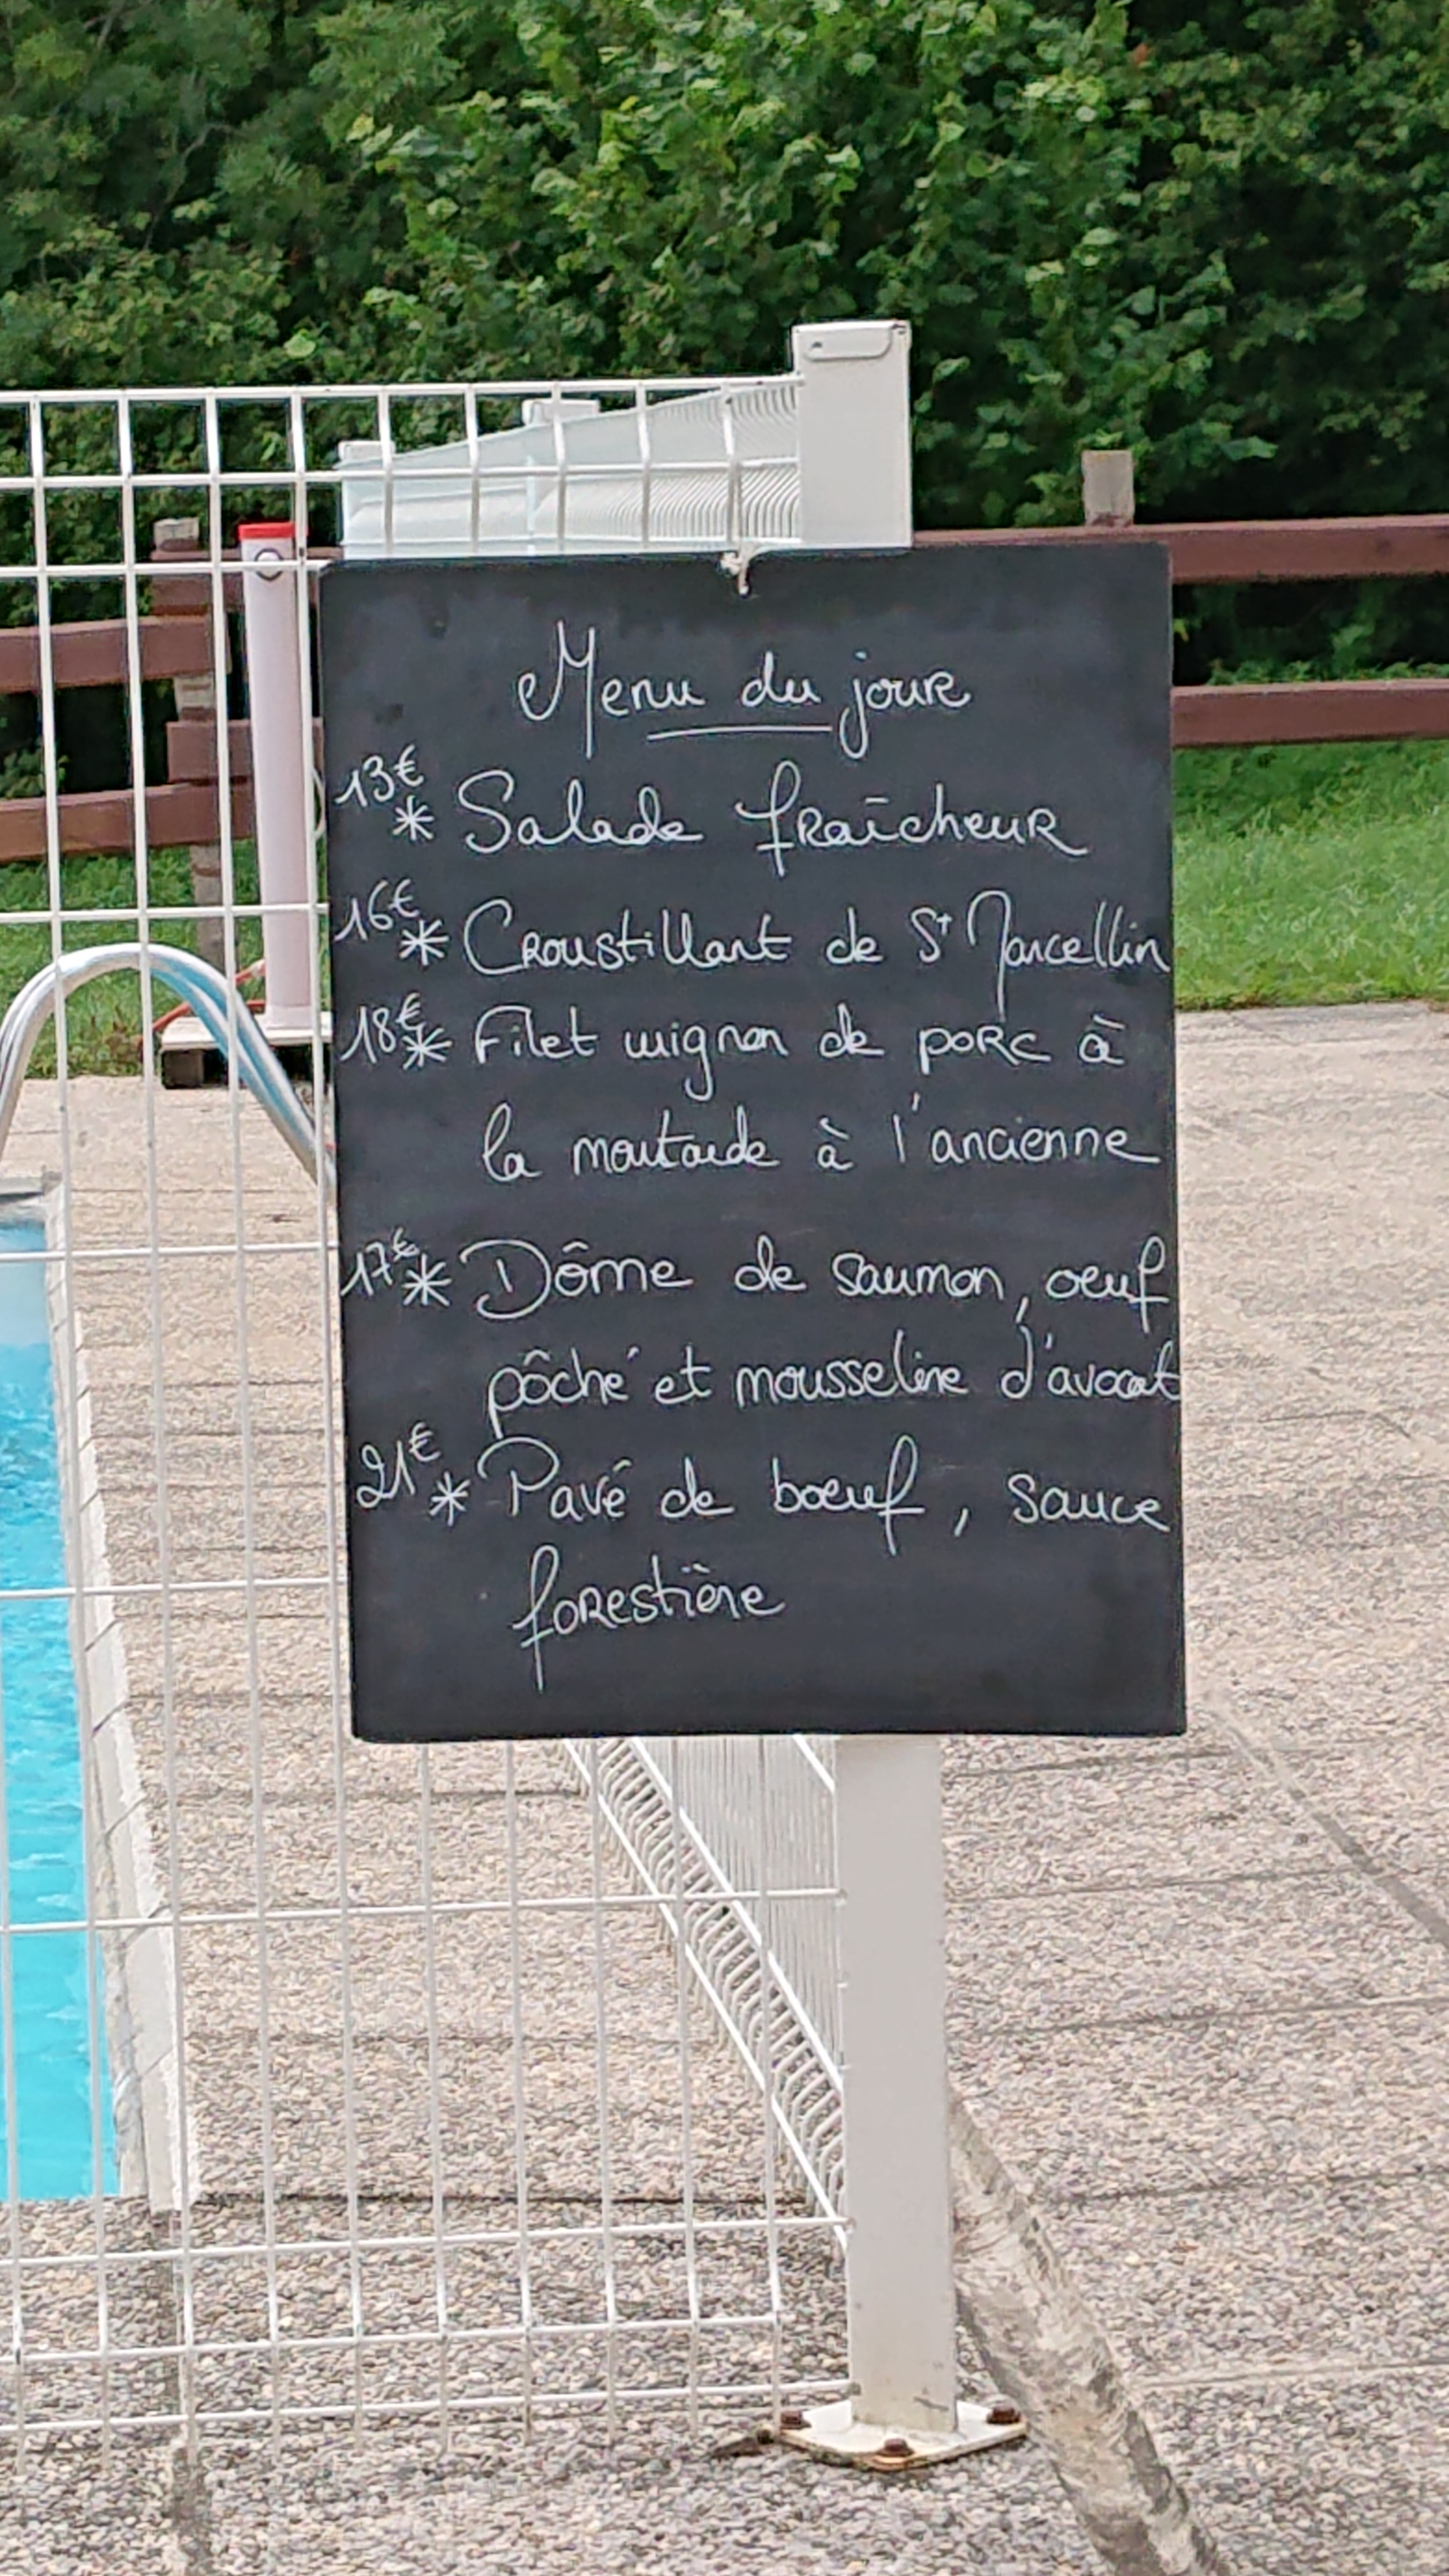 Menu du jour
13€
* Salade fraîcheur
16€
* Croustillant de St Marcellin
18€
* Filet mignon de porc à
la moutarde à l'ancienne
17€
* Dôme de saumon, oeuf
pôché et mousseline d'avocat
21€
* Pavé de boeuf, sauce
forestière